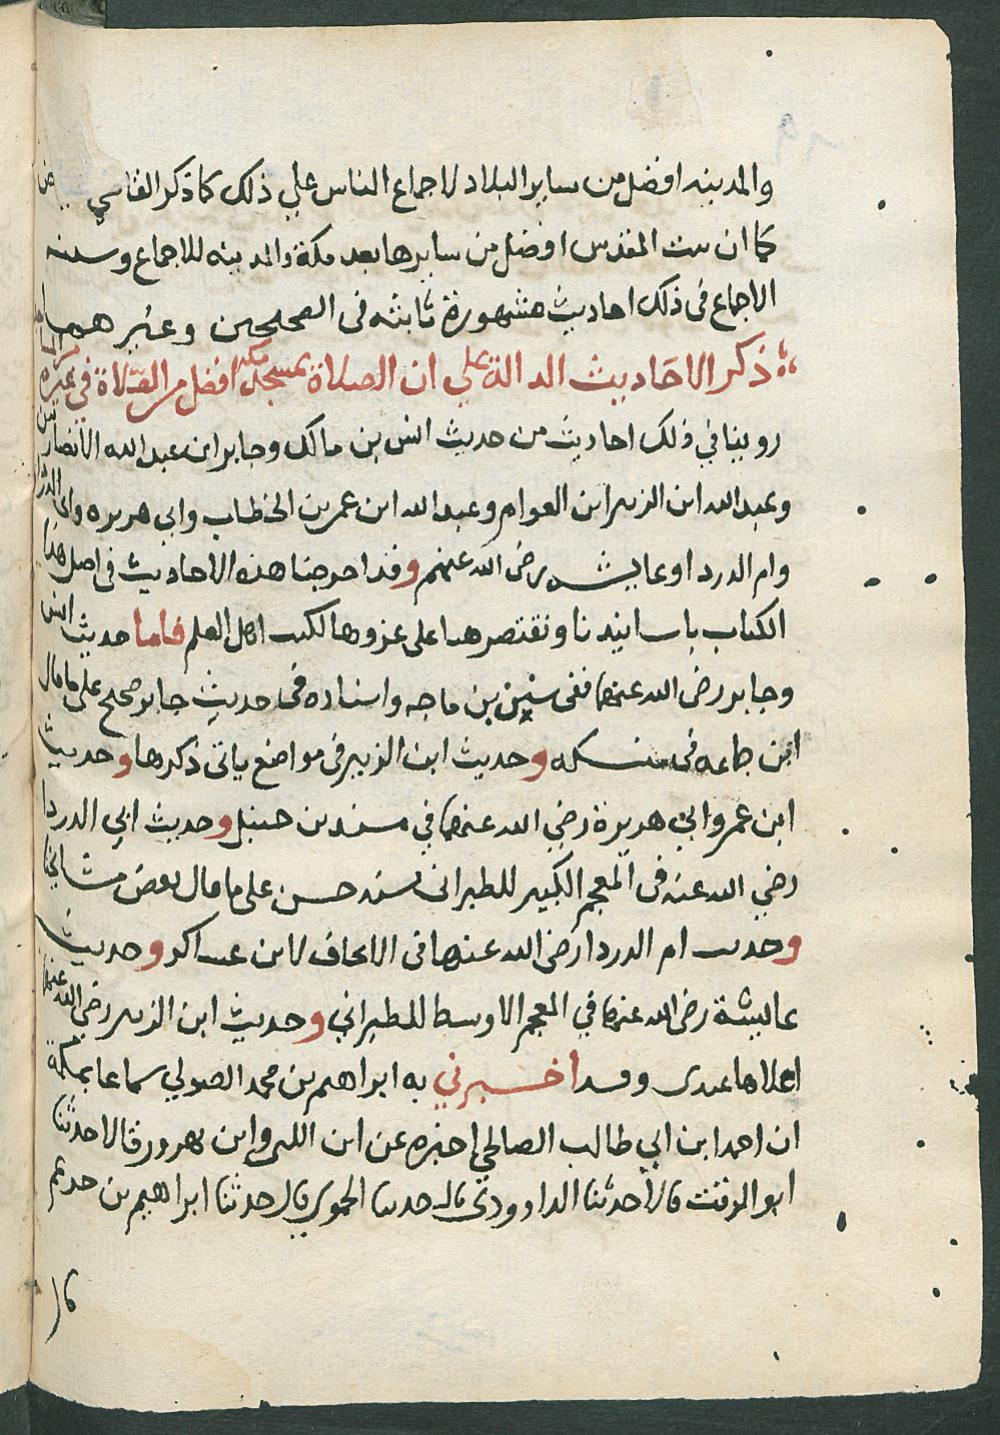 والمدينه افضل من ساير البلاد لاجماع الناس علي ذلك كما ذكر القاضي
كما ان بيت المقدس افضل من سايرها بعد مكة والمدينه للاجماع وسنده
الاجماع في ذلك احاديث مشهورة ثابته في الصحيحين وغيرهما
ذكر الاحاديث الدالة علي ان الصلاة بمسجد مكة افضل من الصلاة في غيره
روينا في ذلك احاديث من حديث انس بن مالك وجابر ابن عبدالله الانصاريين
وعبدالله ابن الزبير ابن العوام وعبدالله ابن عمر بن الخطاب وابي هريره وابي الدردا
وام الدردا وعايشه رضي الله عنهم وقد اخرجنا هذه الاحاديث في اصل هذا
الكتاب باسانيدنا ونقتصر هنا على عزوها لكتب اهل العلم فاما حديث انس
وجابر رضي الله عنهما ففي سنن بن ماجه واسناده في حديث جابر صحيح على ما قال
ابن جماعه في منسكه وحديث ابن الزبير في مواضع ياتي ذكرها وحديث
ابن عمر وابي هريرة رضي الله عنهما في مسند بن حنبل وحديث ابي الدردا
رضي الله عنه في المعجم الكبير للطبراني بسند حسن على ما قال بعض مشايخنا
وحديث ام الدردا رضي الله عنها في الاتحاف لابن عساكر وحديث
عاليشة رضي الله عنها في المعجم الاوسط للطبراني وحديث ابن الزبير رضي الله عنهما
اعلاها عندي وقد اخبرني به ابراهيم بن محمد الصوفي سماعا بمكة
ان احمد ابن ابي طالب الصالحي اخبره عن ابن اللتي وابن بهروز قالا حدثنا
ابو الوقت قال حدثنا الداوودي قال حدثنا الحموي قال حدثنا ابراهيم بن خريم
قال